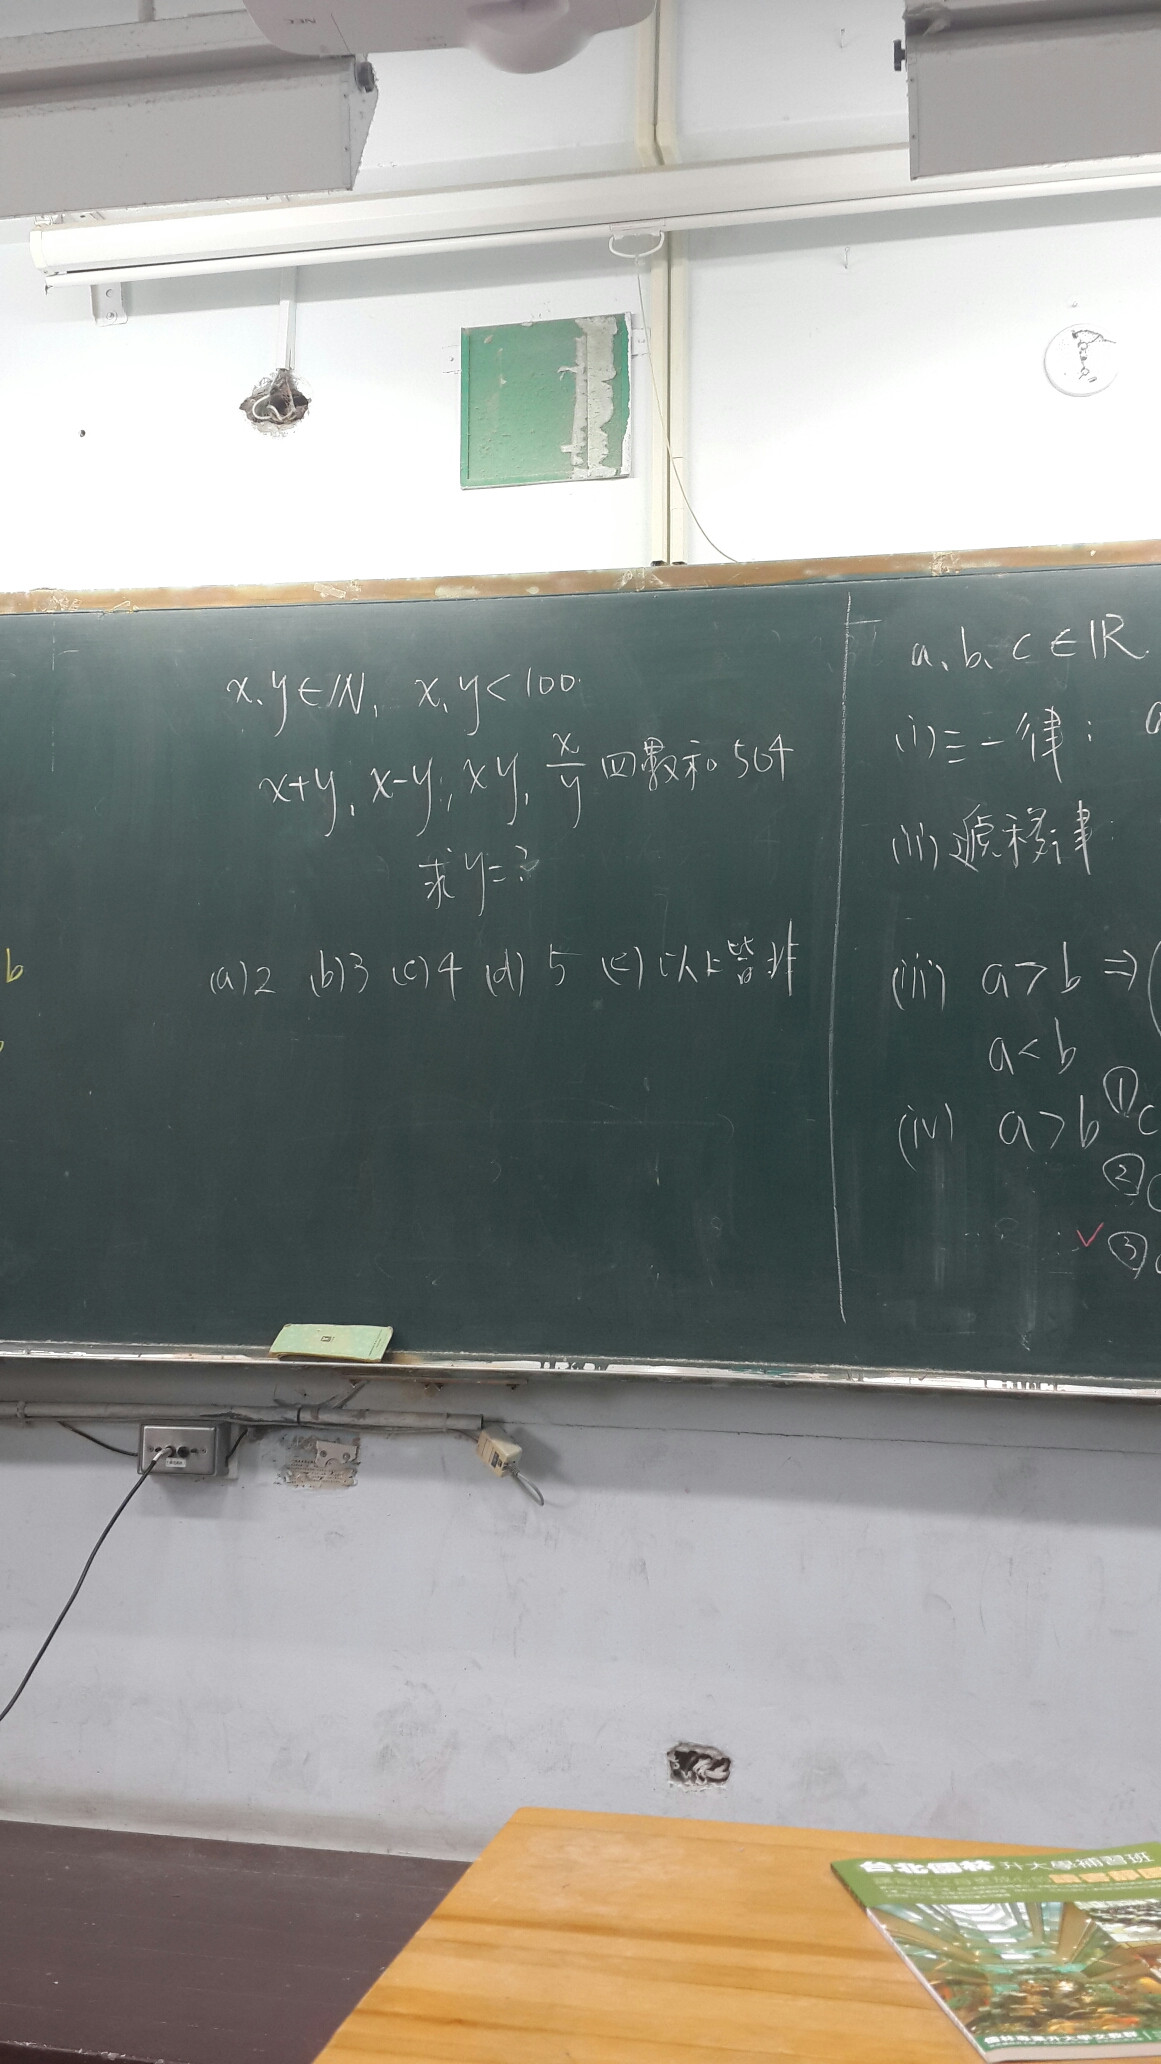 NEC
x、y∈ℕ, x,y<100.
x+y, x-y, xy, x/y 四數和 504
求 y=?
(a)2 (b)3 (c)4 (d)5 (e)以上皆非
b
a、b、c∈ℝ.
(i)三一律:
(ii)遞移律:
(iii) a>b ⇒
a<b
(iv) a>b ① c
②
✓ ③
台北儒林升大學補習班